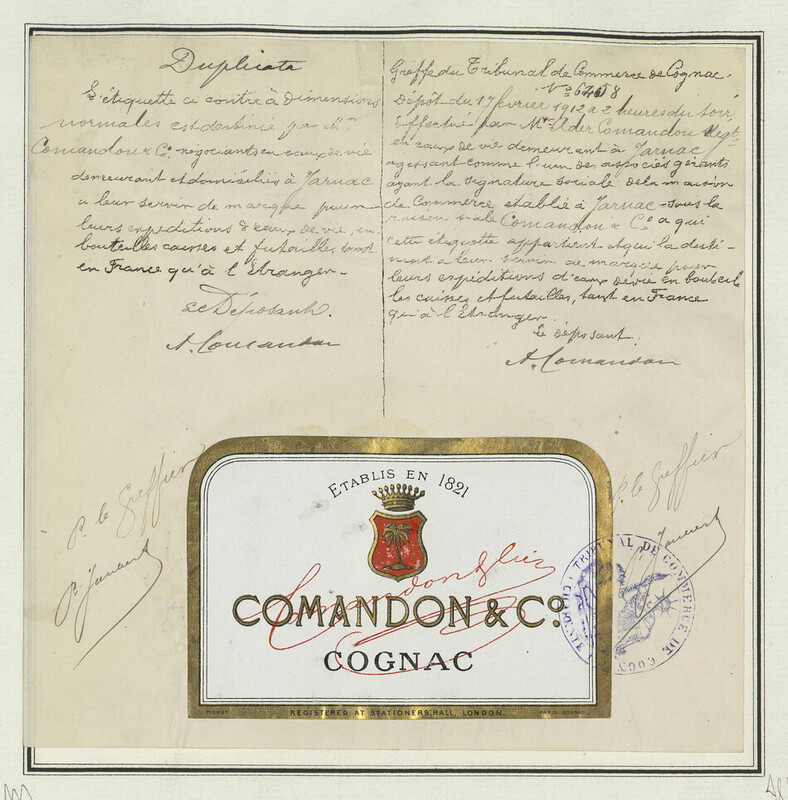 Duplicata
L'étiquette ci contre à dimensions
normales est destinée par Mrs
Comandon & Co. négociants en eaux de vie
demeurant et domiciliés à Jarnac
a leur servir de marque pour
leurs expéditions d'eaux de vie, en
bouteilles caisses et futailles, tant
en France qu'à l'Etranger.
Le Déposant.
A. Comandon
Greffe du Tribunal de Commerce de Cognac.
No
Dépôt du 17 février 1912 a 2 heures du soir,
effectué par Mr Ader Comandon Negt.
en eaux de vie demeurant à Jarnac
agissant comme l'un des associés gérants
ayant la signature sociale de la maison
de Commerce établie à Jarnac sous la
raison sociale Comandon & Co. a qui
cette étiquette appartient et qui la desti-
nent à leur servir de marque pour
leurs expéditions d'eaux de vie en bouteil
les caisses et futailles, tant en France
qu'à l'Etranger.
Le déposant.
A. Comandon
P. le Greffier
P. le Greffier
ETABLIS EN 1821
Comandon & Cie
COMANDON & Co.
COGNAC
PICHOT
REGISTERED AT STATIONERS' HALL, LONDON.
PARIS COGNAC
TRIBUNAL DE COMMERCE DE COGNAC
CHARENTE